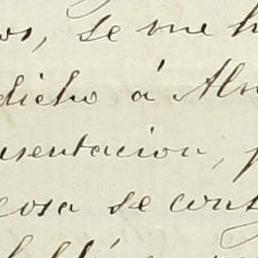 os, se me h
dicho á Alm
usentacion, p
cosa se cons